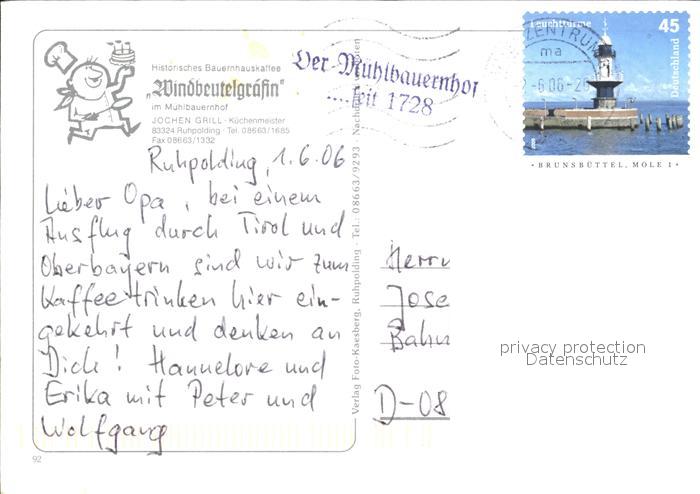 Historisches Bauernhauskaffee
„Windbeutelgräfin"
im Mühlbauernhof
JOCHEN GRILL · Küchenmeister
83324 Ruhpolding · Tel. 08663/1685
Fax 08663/1332
Der Mühlbauernhof
....seit 1728
Leuchttürme
45
Deutschland
ZENTRUM
ma
-6.06-2
· BRUNSBÜTTEL, MOLE 1 ·
Ruhpolding, 1.6.06
Lieber Opa, bei einem
Ausflug durch Tirol und
Oberbayern sind wir zum
Kaffeetrinken hier ein-
gekehrt und denken an
Dich! Hannelore und
Erika mit Peter und
Wolfgang
Verlag Foto-Kaesberg, Ruhpolding · Tel.: 08663/9293 ·
Herrn
Jose
Bahn
D-08
privacy protection
Datenschutz
92